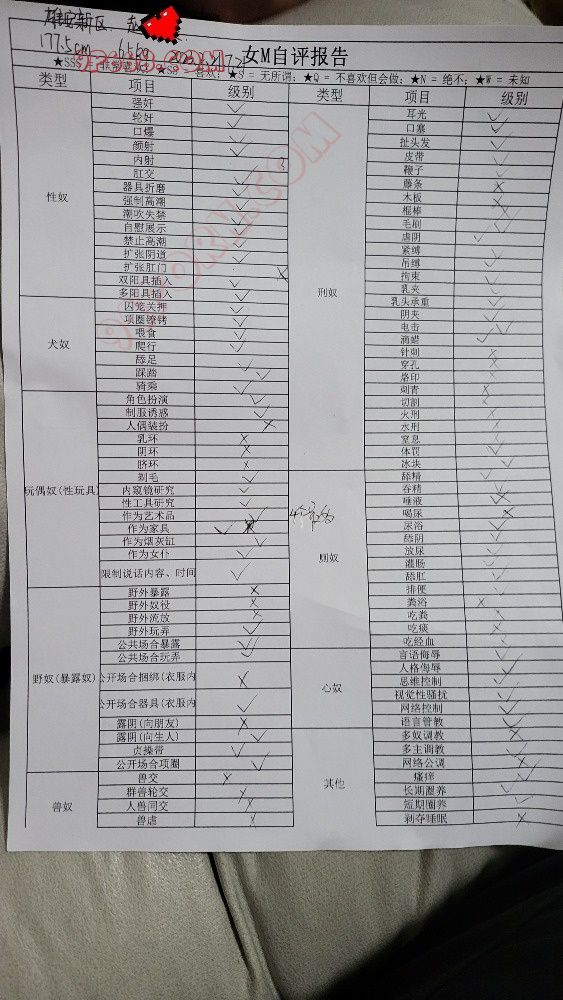 雄安新区 赵
177.5cm 65kg
女M自评报告
★SSS = 非常喜欢; ★SS = 喜欢; ★S = 无所谓; ★Q = 不喜欢但会做; ★N = 绝不; ★W = 未知
类型 项目 级别 类型 项目 级别
性奴
强奸 ✓
轮奸 ✓
口爆 ✓
颜射 ✓
内射
肛交 ✓
器具折磨 ✓
强制高潮 ✓
潮吹失禁 ✓
自慰展示 ✓
禁止高潮 ✓
扩张阴道 ✓
扩张肛门 ×
双阳具插入 ✓
多阳具插入 ✓
犬奴
囚笼关押 ✓
项圈镣铐 ✓
喂食 ✓
爬行 ✓
舔足 ✓
踩踏 ✓
骑乘 ✓
玩偶奴(性玩具)
角色扮演 ✓
制服诱惑 ✓
人偶装扮 ×
乳环 ×
阴环 ×
脐环 ×
剃毛 ✓
内窥镜研究 ✓
性工具研究 ✓
作为艺术品 ✓
作为家具 ✓
作为烟灰缸 ✓
作为女仆 ✓
限制说话内容、时间 ✓
野奴(暴露奴)
野外暴露 ×
野外奴役 ×
野外流放 ×
野外玩弄 ✓
公共场合暴露 ✓
公共场合玩弄 ✓
公开场合捆绑(衣服内 ×
公开场合器具(衣服内 ✓
露阴(向朋友) ×
露阴(向生人) ✓
贞操带 ✓
公开场合项圈 ✓
兽奴
兽交 ×
群兽轮交 ×
人兽同交 ×
兽虐 ×
刑奴
耳光 ✓
口塞 ✓
扯头发 ✓
皮带 ✓
鞭子 ✓
藤条 ×
木板 ×
棍棒 ×
毛刷 ✓
虐阴 ✓
紧缚 ✓
吊缚 ✓
拘束 ✓
乳夹 ✓
乳头承重 ✓
阴夹 ✓
电击 ✓
滴蜡 ✓
针刺 ×
穿孔 ×
烙印 ×
刺青 ×
切割 ×
火刑 ×
水刑 ×
窒息 ✓
体罚 ✓
冰块 ✓
厕奴
舔精 ✓
吞精 ✓
唾液
喝尿 ×
尿浴 ✓
舔阴 ✓
放尿 ✓
灌肠 ✓
舔肛 ✓
排便 ✓
粪浴 ×
吃粪 ×
吃痰 ×
吃经血 ×
心奴
言语侮辱 ✓
人格侮辱 ✓
思维控制 ✓
视觉性骚扰 ✓
网络控制 ✓
语言管教 ✓
其他
多奴调教 ×
多主调教 ✓
网络公调 ×
瘙痒 ✓
长期圈养 ✓
短期圈养 ✓
剥夺睡眠 ×